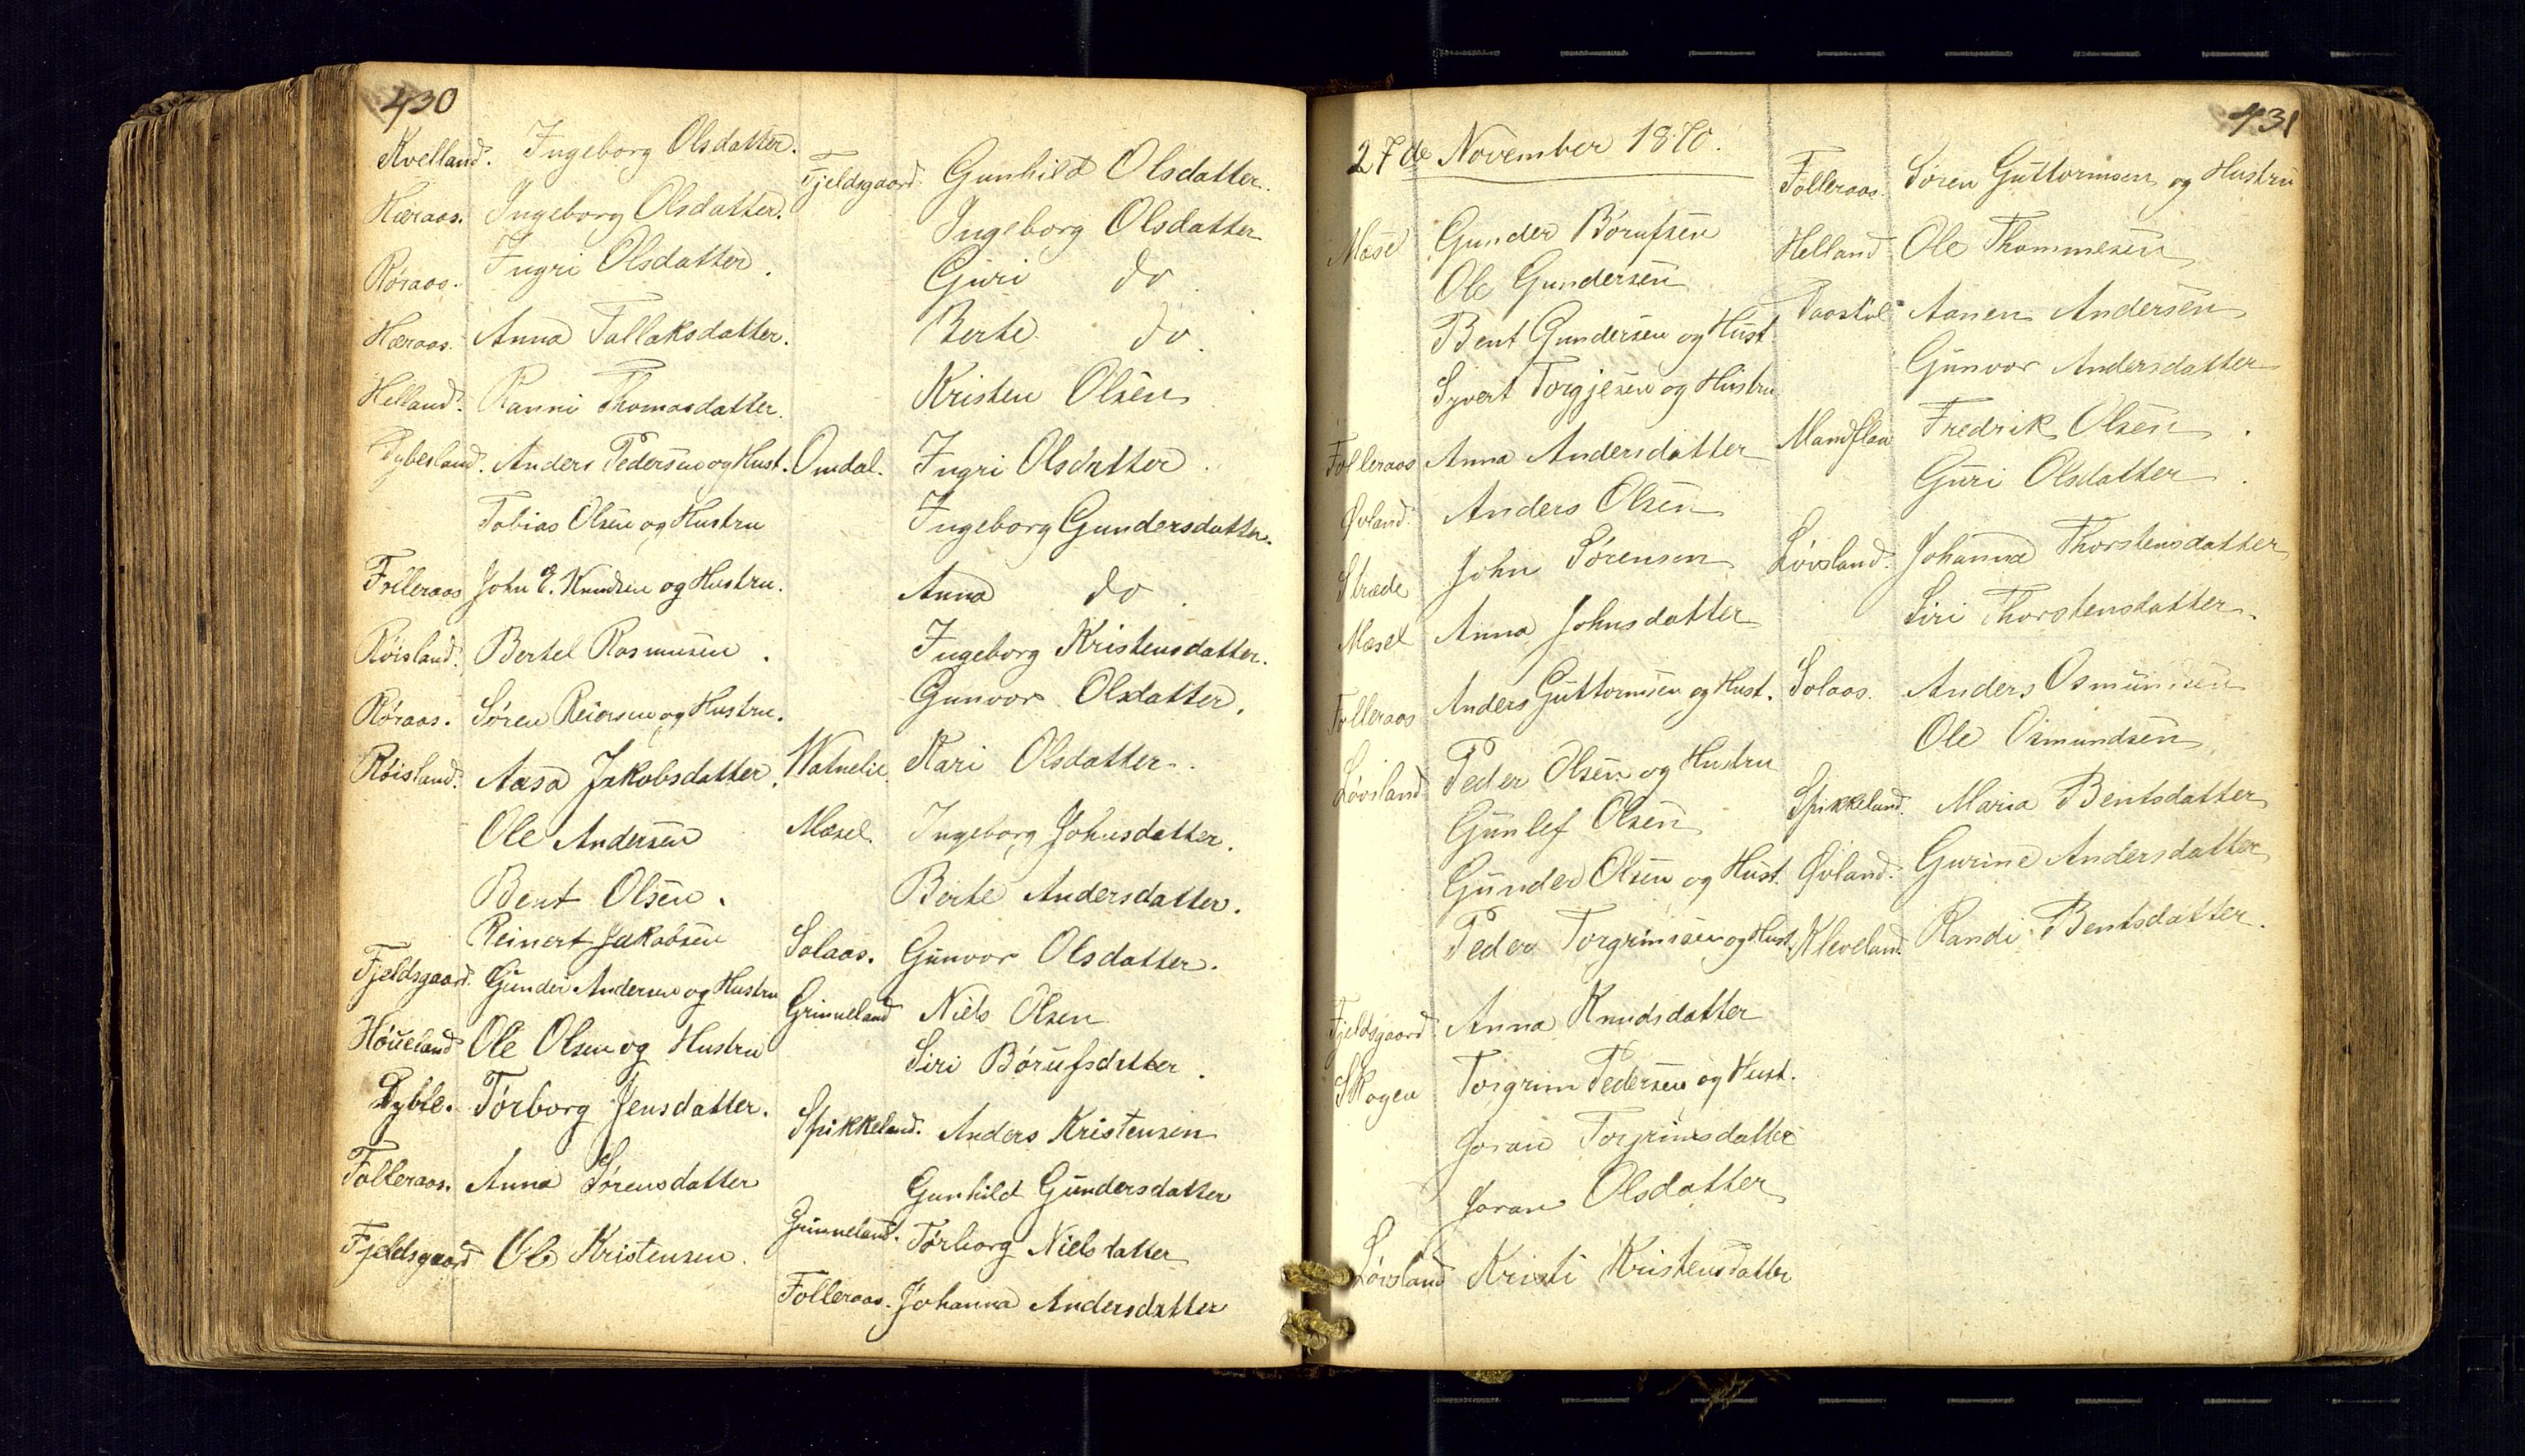 430
Kvelland. Ingeborg Olsdatter.
Hæraas. Ingeborg Olsdatter.
Røraas. Ingri Olsdatter.
Hæraas. Anna Tallaksdatter.
Helland. Ranni Thomasdatter.
Dybesland. Anders Pedersen og Hust.
Tobias Olsen og Hustru
Folleraas John E. Knudsen og Hustru.
Røisland. Bertel Rasmusen.
Røraas. Søren Reiersen og Hustru.
Røisland. Aasa Jakobsdatter.
Ole Andersen
Bent Olsen.
Reinert Jakobsen
Fjeldsgaard. Gunder Andersen og Hustru
Høueland Ole Olsen og Hustru
Dyble. Torborg Jensdatter.
Folleraas. Anna Sørensdatter
Fjeldsgaard Ole Kristensen.
Fjeldsgaard. Gunhild Olsdatter.
Ingeborg Olsdatter
Guri do.
Berte do.
Kristen Olsen
Omdal. Ingri Olsdatter.
Ingeborg Gundersdatter.
Anna do.
Ingeborg Kristensdatter.
Gunvor Olsdatter.
Watnelie. Kari Olsdatter.
Mæsel. Ingeborg Johnsdatter.
Berte Andersdatter.
Solaas. Gunvor Olsdatter.
Grinneland Niels Olsen
Siri Bórufsdatter.
Spikkeland. Anders Kristensen
Gunhild Gundersdatter
Grinneland. Torborg Nielsdatter
Folleraas. Johanna Andersdatter
431
27de November 1870.
Gunder Bórufsen
Ole Gundersen
Bent Gundersen og Hust
Syvert Torgjesen og Hustru
Folleraas Anna Andersdatter
Øvland. Anders Olsen
Stræde John Sørensen
Mæsel Anna Johnsdatter
Folleraas Anders Guttormsen og Hust.
Løvsland Peder Olsen og Hustru
Gunlef Olsen
Gunder Olsen og Hust.
Peder Torgrimsen og Hust.
Fjeldsgaard. Anna Knudsdatter
Skogen Torgrim Pedersen og Hust.
Joran Torgrimsdatter
Joran Olsdatter
Løvsland Kristi Kristensdatter
Folleraas. Søren Guttormsen og Hustru
Helland Ole Thommesen
Aanen Andersen
Gunvor Andersdatter
Mandflaa Fredrik Olsen.
Guri Olsdatter.
Løvsland. Johanna Thorstensdatter
Siri Thorstensdatter.
Solaas. Anders Osmundsen
Ole Osmundsen
Spikkeland. Maria Bentsdatter
Øvland. Gurine Andersdatter
Kleveland. Randi Bentsdatter.